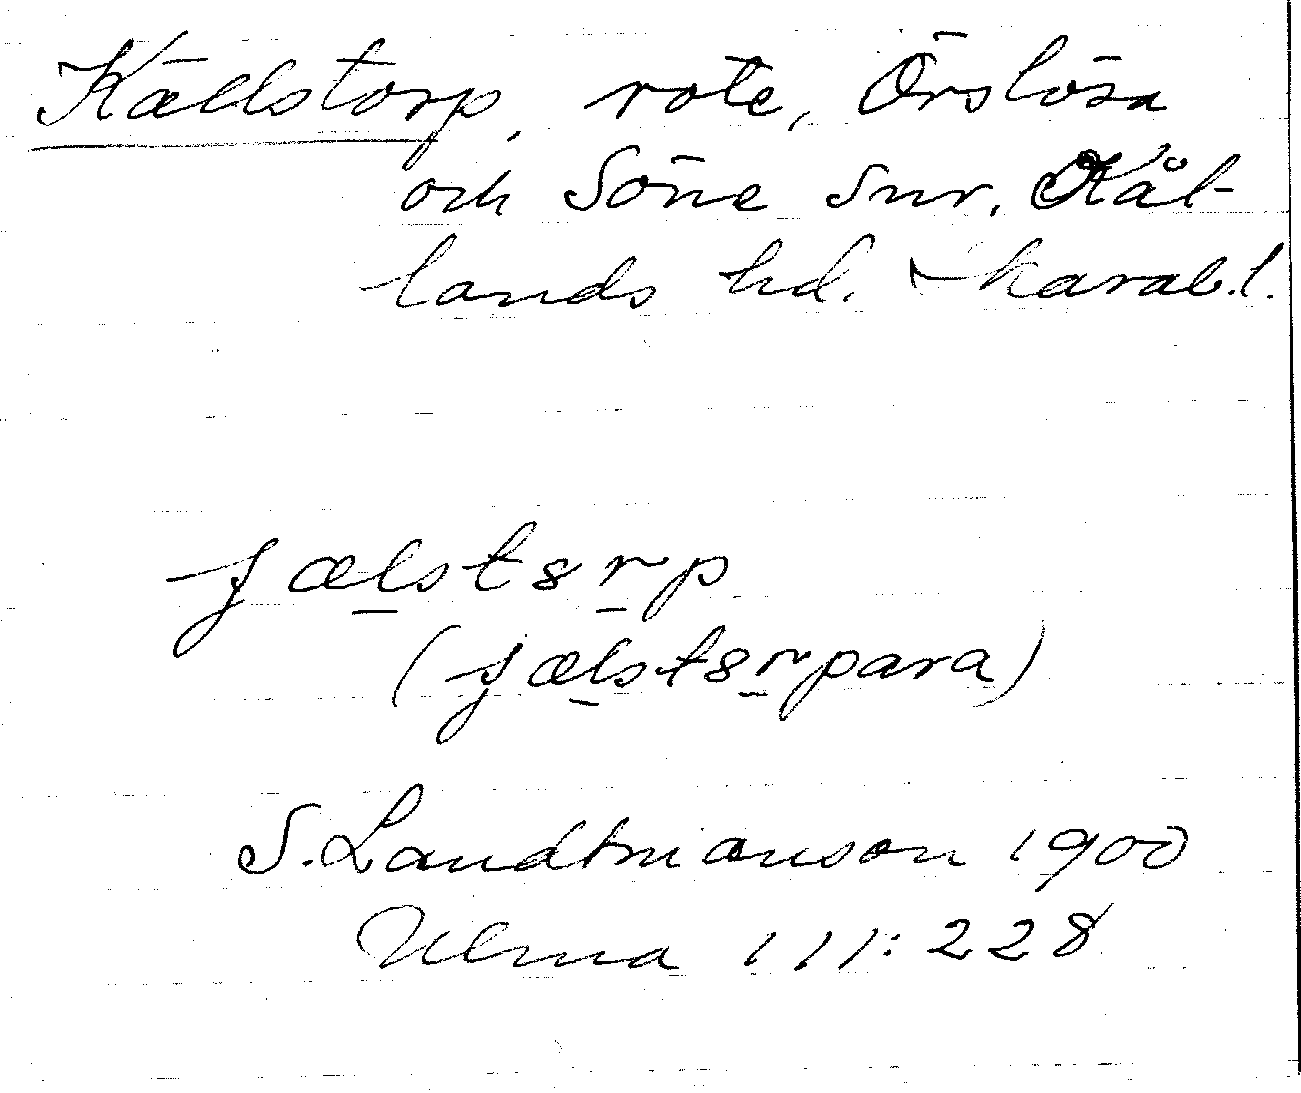 Källstorp, rote, Örslösa
och Söne snr, Kål-
lands hd. Skarab.l.
jælstɞrp
(jælstɞrpara)
S. Landtmanson 1900
Ulma 111:228